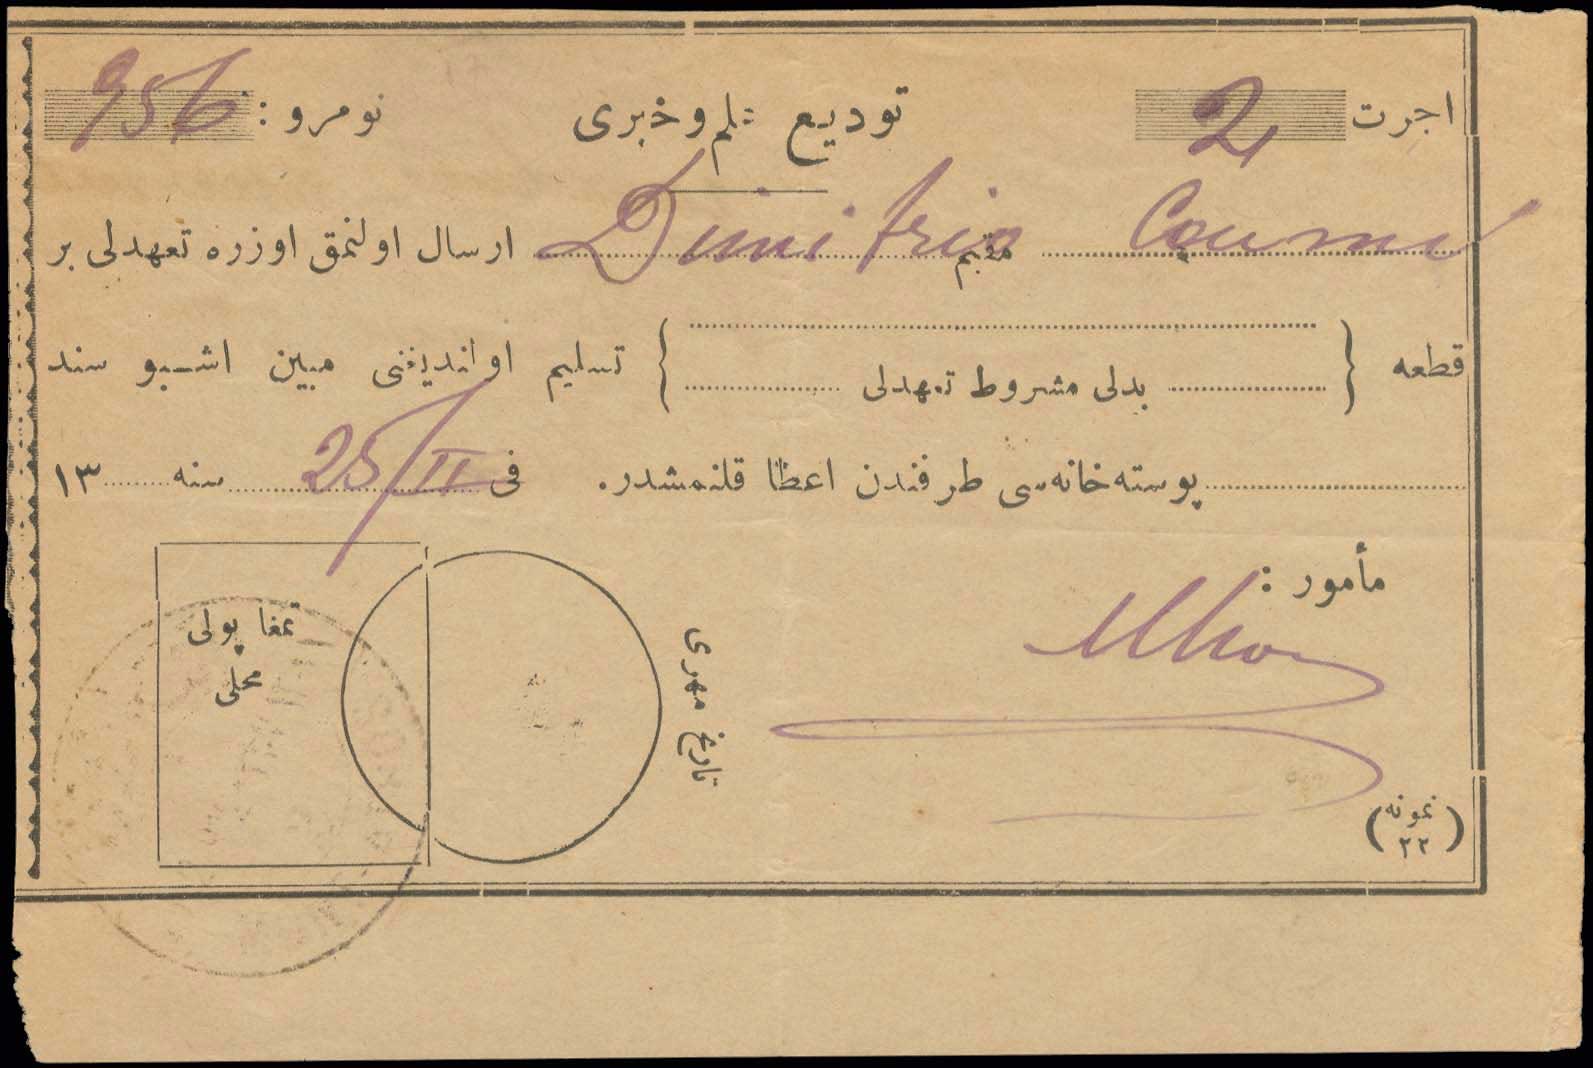 اجرت 2 توديع علم و خبرى نومرو : 956
Coumi مقيم Dimitrio ارسال اولنمق اوزره تعهدلى بر
قطعه { بدلى مشروط تعهدلى } تسليم اولنديغنى مبين اشبو سند
پوسته‌خانه‌سى طرفندن اعطا قلنمشدر. فى 25/II سنه ١٣
مأمور :
تمغا پولى
محلى
تاريخ مهرى
(نمونه
٢٢)